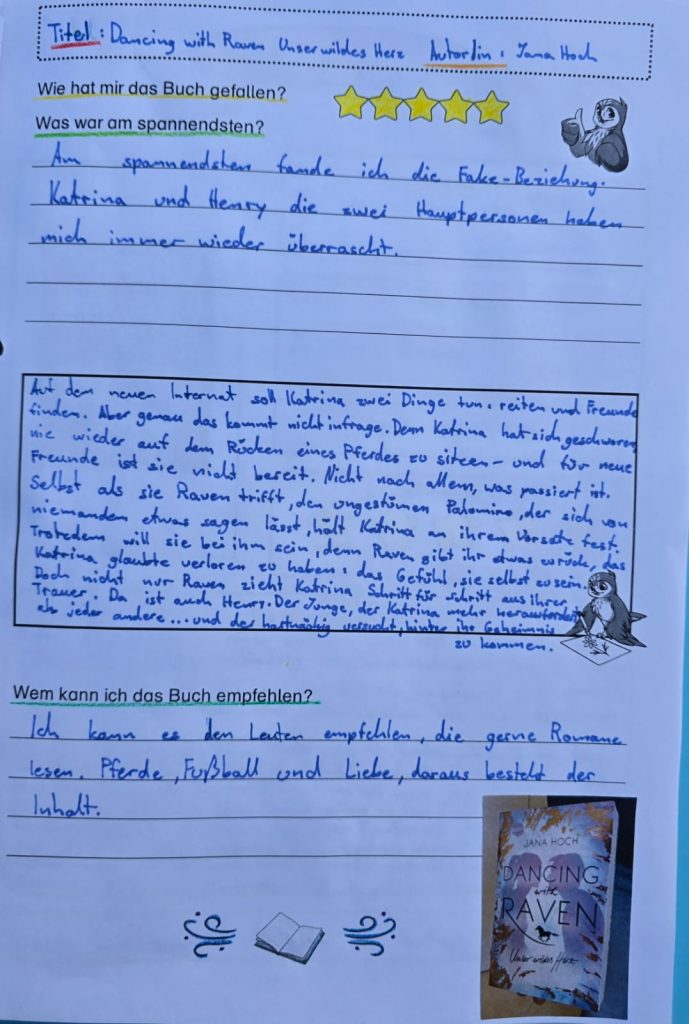 Titel: Dancing with Raven Unser wildes Herz Autor/in: Jana Hoch
Wie hat mir das Buch gefallen?
Was war am spannendsten?
Am spannendsten fande ich die Fake-Beziehung.
Katrina und Henry die zwei Hauptpersonen haben
mich immer wieder überrascht.
Auf dem neuen Internat soll Katrina zwei Dinge tun: reiten und Freunde
finden. Aber genau das kommt nicht infrage. Denn Katrina hat sich geschworen,
nie wieder auf dem Rücken eines Pferdes zu sitzen - und für neue
Freunde ist sie nicht bereit. Nicht nach allem, was passiert ist.
Selbst als sie Raven trifft, den ungestümen Palomino, der sich von
niemandem etwas sagen lässt, hält Katrina an ihrem Vorsatz fest.
Trotzdem will sie bei ihm sein, denn Raven gibt ihr etwas zurück, das
Katrina glaubte verloren zu haben: das Gefühl, sie selbst zu sein.
Doch nicht nur Raven zieht Katrina Schritt für Schritt aus ihrer
Trauer. Da ist auch Henry. Der Junge, der Katrina mehr herausfordert
als jeder andere... und der hartnäckig versucht, hinter ihr Geheimnis
zu kommen.
Wem kann ich das Buch empfehlen?
Ich kann es den Leuten empfehlen, die gerne Romane
lesen. Pferde, Fußball und Liebe, daraus besteht der
Inhalt.
JANA HOCH
DANCING
with
RAVEN
Unser wildes Herz